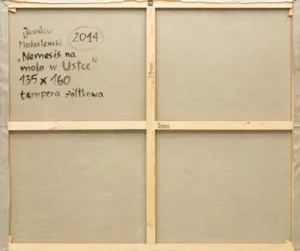 Jarosław 2014
Modzelewski
„Nemesis na
molo w Ustce"
135 x 160
tempera żółtkowa